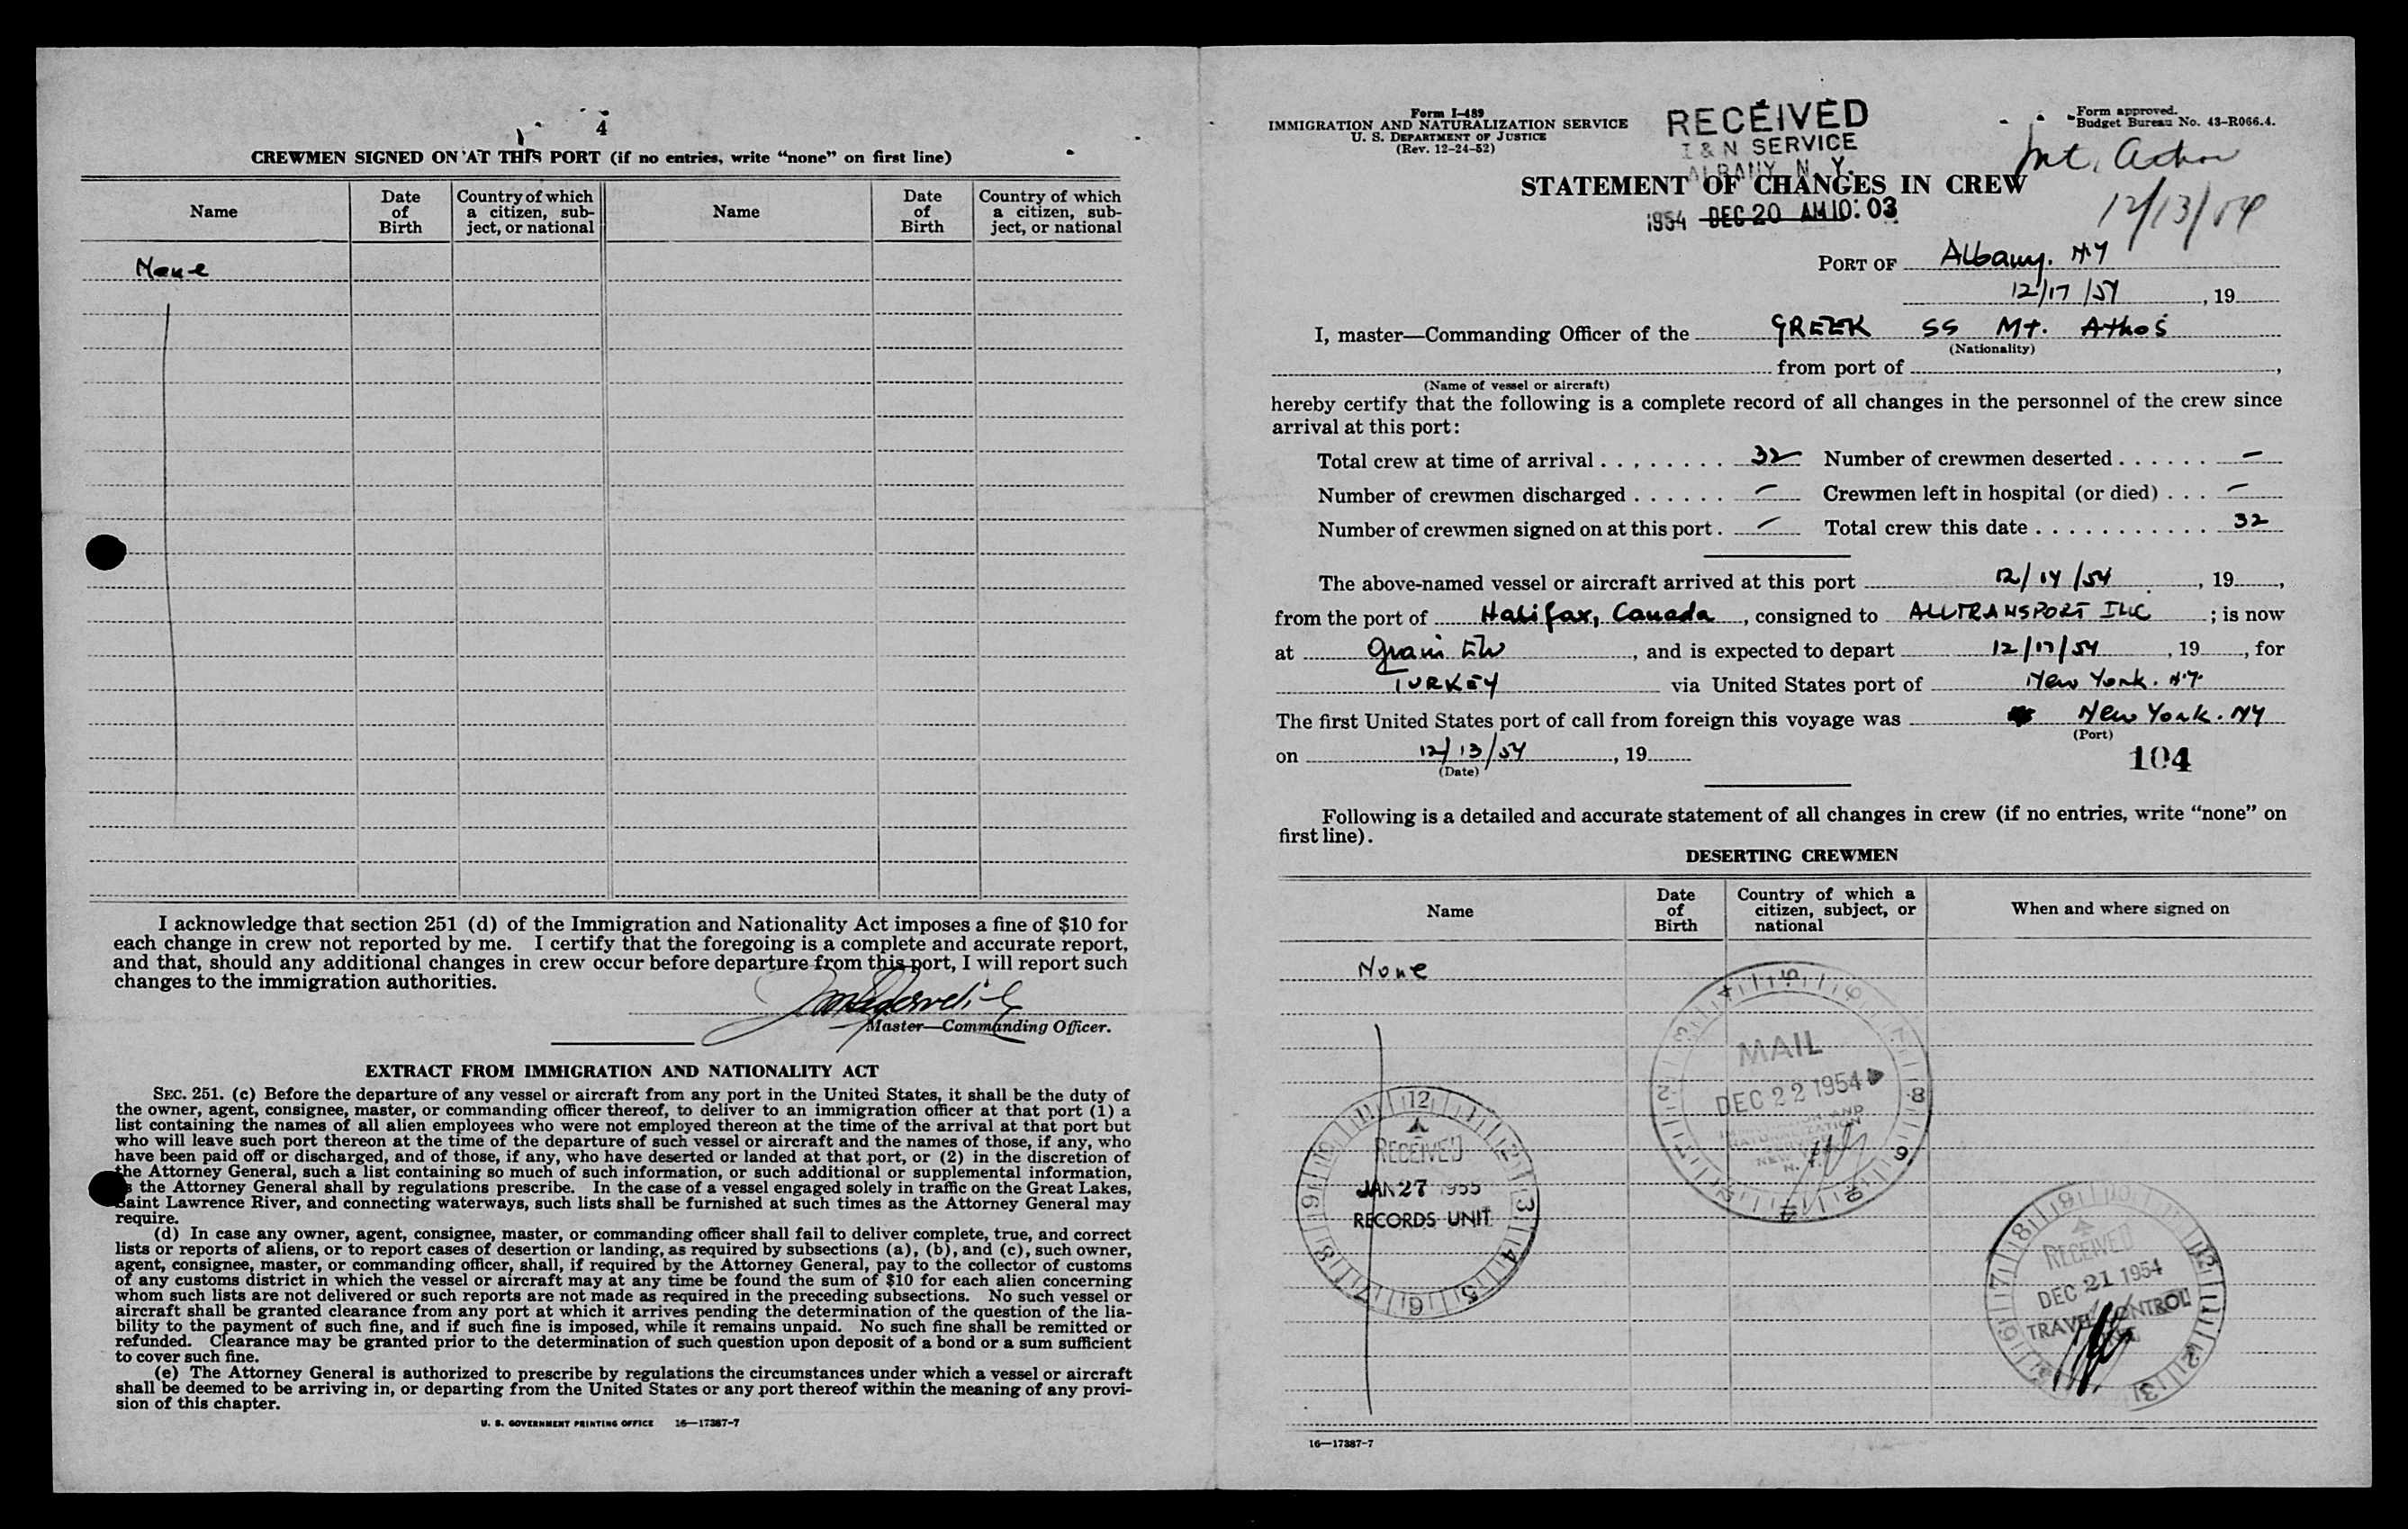 4
CREWMEN SIGNED ON AT THIS PORT (if no entries, write “none” on first line)
Name
Date of Birth
Country of which a citizen, subject, or national
Name
Date of Birth
Country of which a citizen, subject, or national
None
I acknowledge that section 251 (d) of the Immigration and Nationality Act imposes a fine of $10 for
each change in crew not reported by me. I certify that the foregoing is a complete and accurate report,
and that, should any additional changes in crew occur before departure from this port, I will report such
changes to the immigration authorities.
Master—Commanding Officer.
EXTRACT FROM IMMIGRATION AND NATIONALITY ACT
SEC. 251. (c) Before the departure of any vessel or aircraft from any port in the United States, it shall be the duty of
the owner, agent, consignee, master, or commanding officer thereof, to deliver to an immigration officer at that port (1) a
list containing the names of all alien employees who were not employed thereon at the time of the arrival at that port but
who will leave such port thereon at the time of the departure of such vessel or aircraft and the names of those, if any, who
have been paid off or discharged, and of those, if any, who have deserted or landed at that port, or (2) in the discretion of
the Attorney General, such a list containing so much of such information, or such additional or supplemental information,
the Attorney General shall by regulations prescribe. In the case of a vessel engaged solely in traffic on the Great Lakes,
Saint Lawrence River, and connecting waterways, such lists shall be furnished at such times as the Attorney General may
require.
(d) In case any owner, agent, consignee, master, or commanding officer shall fail to deliver complete, true, and correct
lists or reports of aliens, or to report cases of desertion or landing, as required by subsections (a), (b), and (c), such owner,
agent, consignee, master, or commanding officer, shall, if required by the Attorney General, pay to the collector of customs
of any customs district in which the vessel or aircraft may at any time be found the sum of $10 for each alien concerning
whom such lists are not delivered or such reports are not made as required in the preceding subsections. No such vessel or
aircraft shall be granted clearance from any port at which it arrives pending the determination of the question of the lia-
bility to the payment of such fine, and if such fine is imposed, while it remains unpaid. No such fine shall be remitted or
refunded. Clearance may be granted prior to the determination of such question upon deposit of a bond or a sum sufficient
to cover such fine.
(e) The Attorney General is authorized to prescribe by regulations the circumstances under which a vessel or aircraft
shall be deemed to be arriving in, or departing from the United States or any port thereof within the meaning of any provi-
sion of this chapter.
U. S. GOVERNMENT PRINTING OFFICE 16—17387-7
Form I-489
IMMIGRATION AND NATURALIZATION SERVICE
U. S. DEPARTMENT OF JUSTICE
(Rev. 12-24-52)
RECEIVED
I & N SERVICE
ALBANY, N. Y.
1954 DEC 20 AM 10:03
Form approved.
Budget Bureau No. 43-R066.4.
Mt.
12/13/54
STATEMENT OF CHANGES IN CREW
PORT OF Albany. NY
12/17/54, 19
I, master—Commanding Officer of the GREEK SS Mt. Athos
(Nationality)
from port of ,
(Name of vessel or aircraft)
hereby certify that the following is a complete record of all changes in the personnel of the crew since
arrival at this port:
Total crew at time of arrival 32 Number of crewmen deserted —
Number of crewmen discharged — Crewmen left in hospital (or died) —
Number of crewmen signed on at this port — Total crew this date 32
The above-named vessel or aircraft arrived at this port 12/14/54, 19 ,
from the port of Halifax, Canada, consigned to ALLTRANSPORT INC ; is now
at Grain Elv, and is expected to depart 12/17/54, 19 , for
TURKEY via United States port of New York. NY
The first United States port of call from foreign this voyage was New York. NY
(Port)
on 12/13/54, 19
(Date)
104
Following is a detailed and accurate statement of all changes in crew (if no entries, write “none” on
first line).
DESERTING CREWMEN
Name
Date of Birth
Country of which a citizen, subject, or national
When and where signed on
None
MAIL
DEC 22 1954
RECEIVED
JAN 27 1955
RECORDS UNIT
RECEIVED
DEC 21 1954
TRAVEL CONTROL
16—17387-7